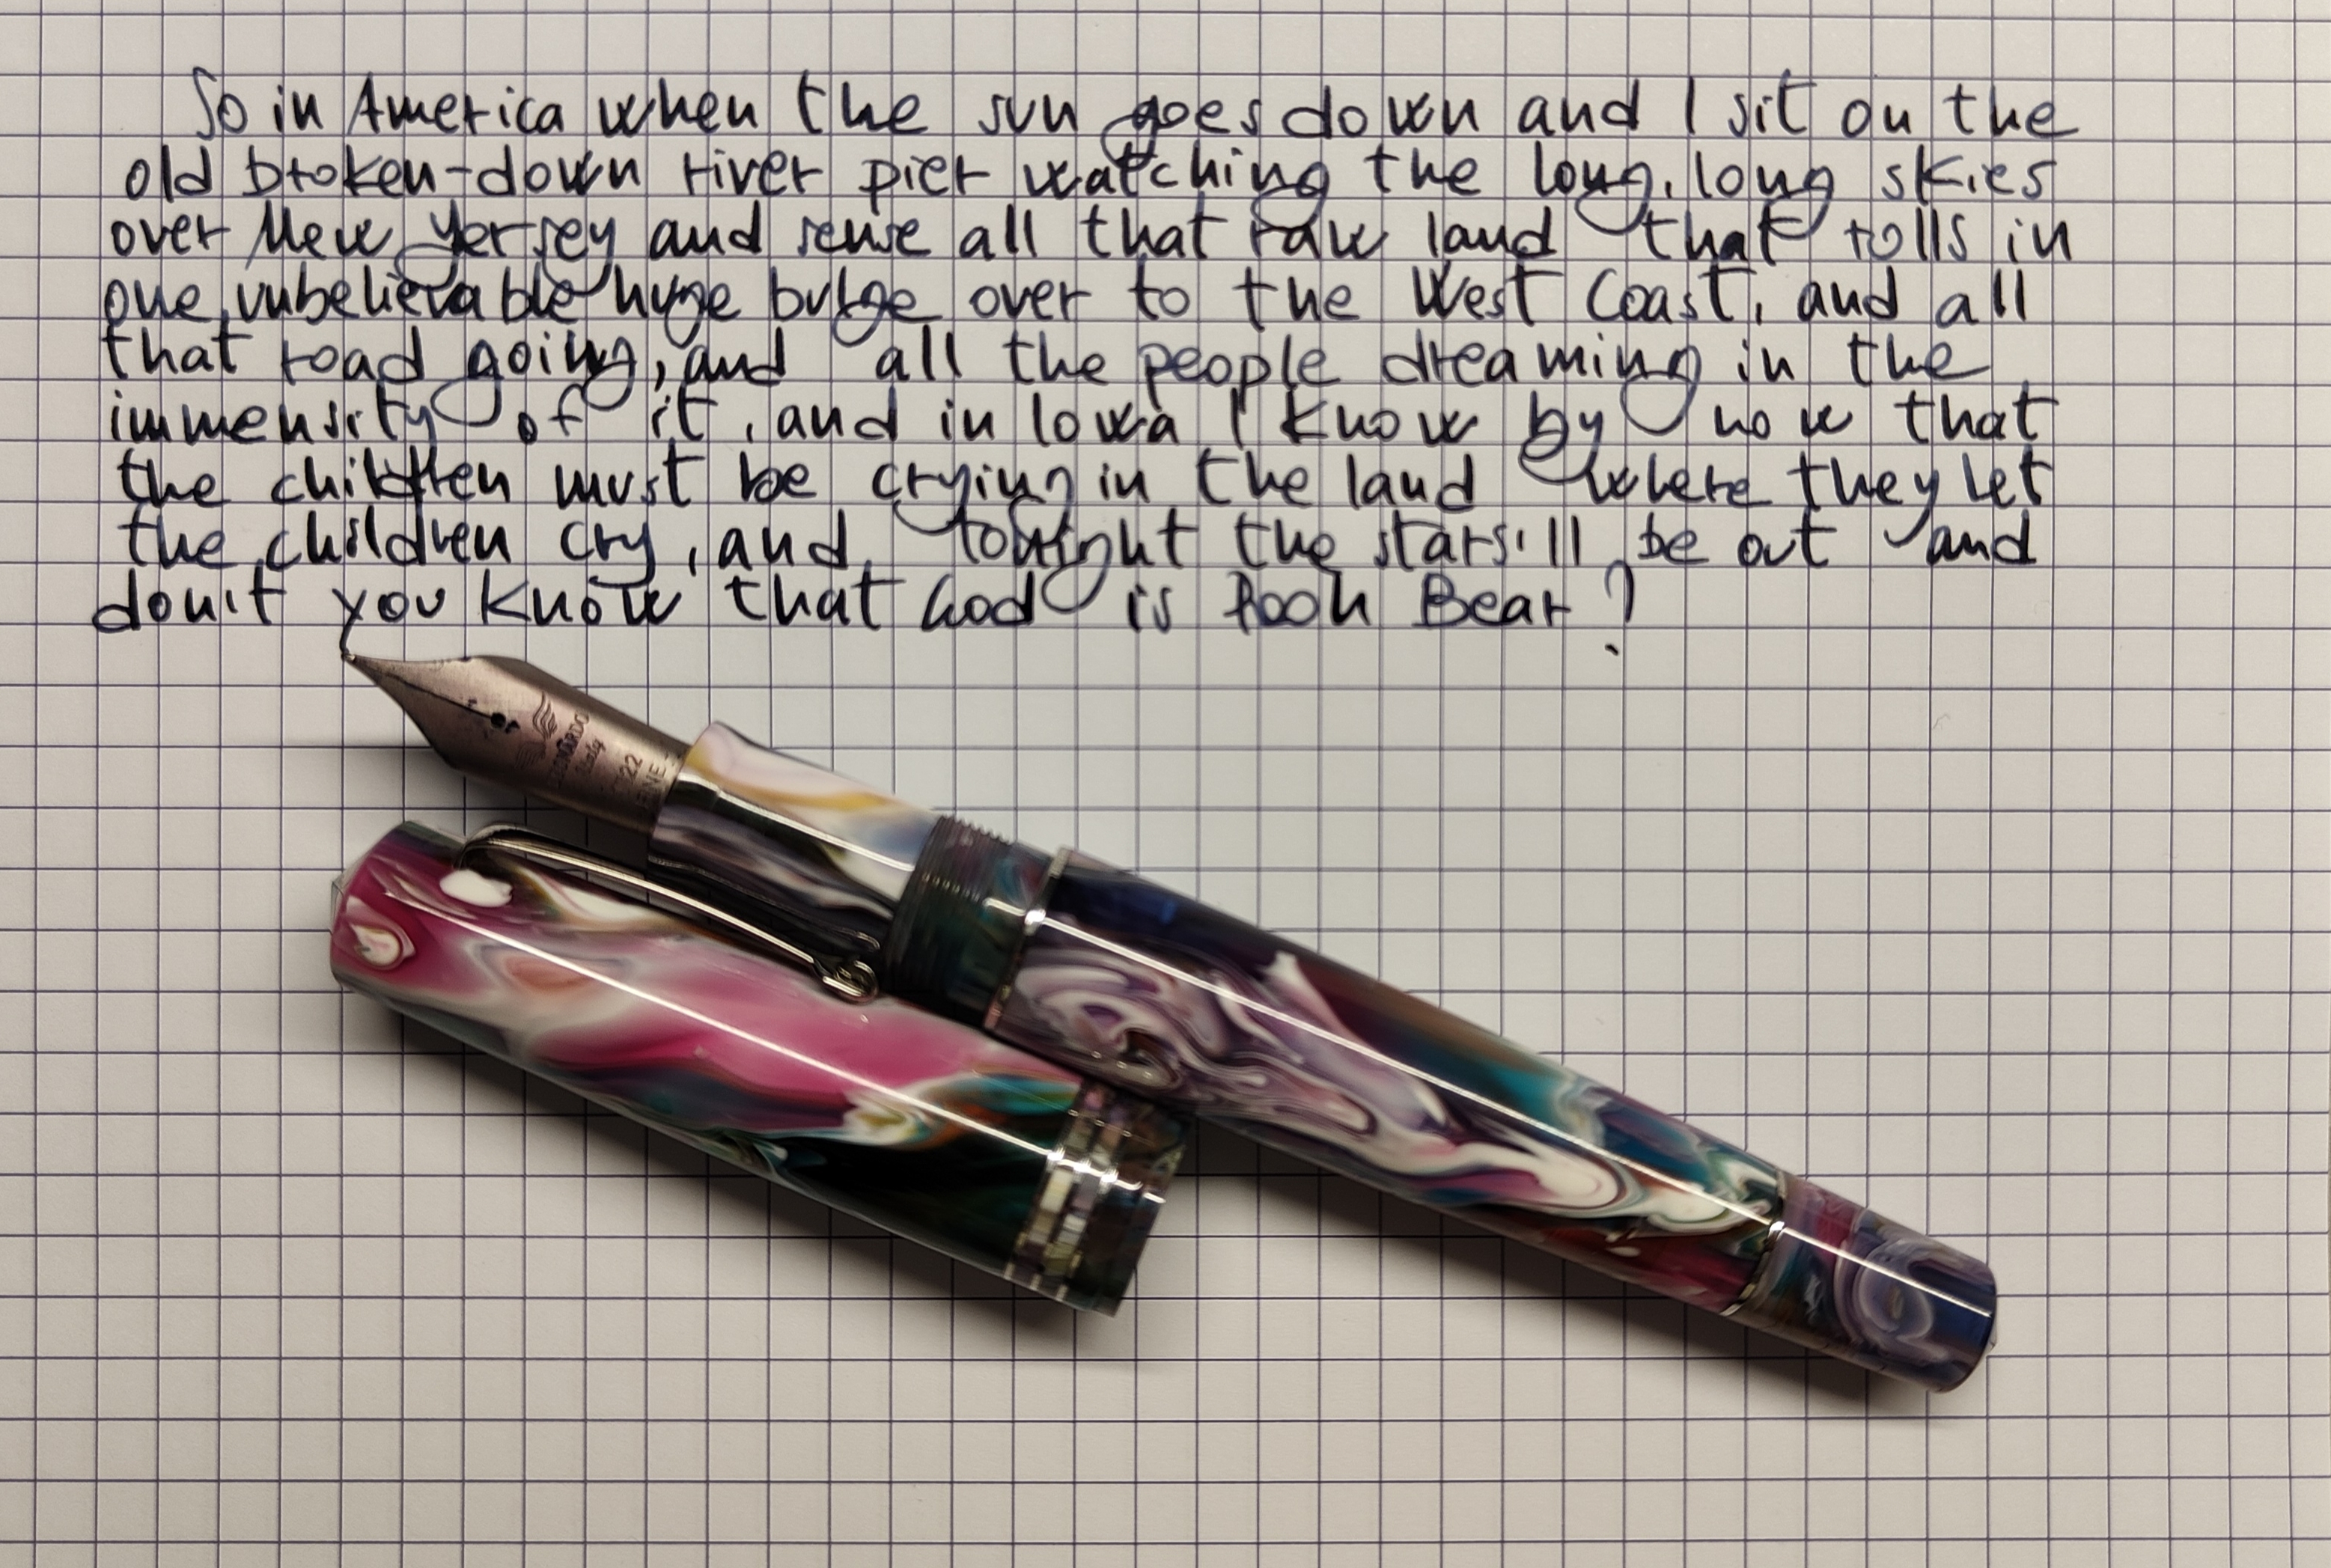 So in America when the sun goes down and I sit on the
old broken-down river pier watching the long, long skies
over New Yersey and sense all that raw land that rolls in
one unbelievable huge bulge over to the West Coast, and all
that road going, and all the people dreaming in the
immensity of it, and in Iowa I know by now that
the children must be crying in the land where they let
the children cry, and tonight the stars'll be out and
don't you know that God is Pooh Bear?
LEONARDO
Italy